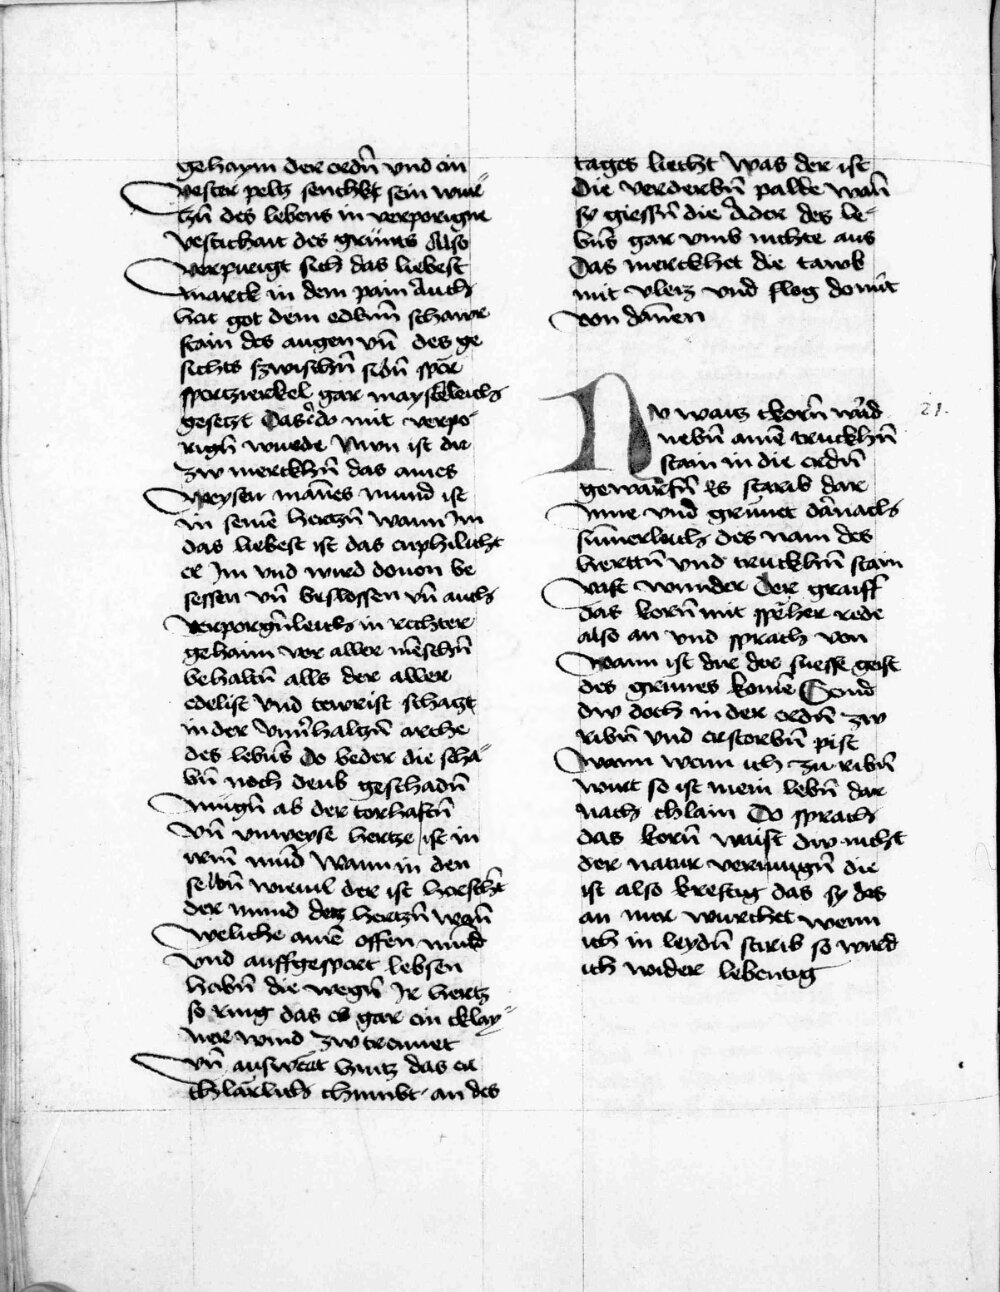 gehaym der erdn̄ vnd ein
vester peltz senckht sein wur-
tzn̄ des lebens in verporigne
vestichait des grünts Also
verpirigt sich das liebest
marck in dem pain Auch
hat got dem edlnn̄ schawr
stain des augen vn̄ des ge
sichts szwischn̄ sidn̄ spēr
sportzierkel gar maysterleich
gesetzt Das do mit verpo-
rign̄ wurde Nwn ist die
zw merckhn̄ das aines
weysen mānes mund ist
in seinē hertzn̄ wann Im
das liebest ist das enphilicht
er Im vnd wird douon be
sessen vn̄ beslossen vn̄ auch
verporgn̄leich in rechter
gehaim vor aller mēschn̄
behaltn̄ alls der aller
edelist vnd tewrist schatzt
in der arche
des lebn̄s Do veder die scha-
bn̄ noch deub geschadn̄
mügn̄ ab der torhaftn̄
vn̄ vnweyse hertze ist in
irm̄ mūd Wann in den
selbn̄ der ist herscht
der mund des hertzn̄ wan̄
weliche ainē offen mūd
vnd auffgespart lebsen
habn̄ die wegn̄ Ir hertz
so ring das es gar ein cklay-
ner wind zw trennet
vn̄ auswēet hintz das er
chlärlich chumbt an des
tages liecht Was der ist
die verderbn̄ palde wān
sy giessn̄ die Ader des le-
bn̄s gar vmb nichte aus
Das merckhet die tawb
mit vleiz vnd flog domit
von dānen
Nv waitz ckorn̄ wūd 21.
nebn̄ ainē truckhn̄
stain in die erdn̄
gewarfn̄ Es starib dar
Inne vnd grünet dārnach
sūmerleich des nam des
hertn̄ vnd trucklnn̄ stain
vast wunder Der graiff
das korn̄ mit spēher rede
also an vnd sprach von
wann ist dir der suesse geist
des grünes komē Seind
dw doch in der erdn̄ zw
ribn̄ vnd erstorbn̄ pist
Wann wenn ich zu ribn̄
wurt so ist mein lebn̄ dar
nach chlain Do sprach
das korn̄ waist dw nicht
der natur vermugn̄ die
ist also kreftig das sy des
an mir wurchet wenn
ich in leydn̄ stirib so wird
ich wider lebentig